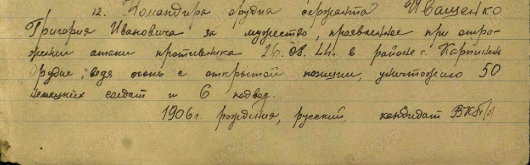 12. Командира орудия сержанта Иващенко
Григория Ивановича, за мужество, проявленное при отра-
жении атаки противника 26.08.44г. в районе с.
Орудие, ведя огонь с открытой позиции, уничтожило 50
немецких солдат и 6 подвод.
1906 г. рождения, русский, кандидат ВКП/б/